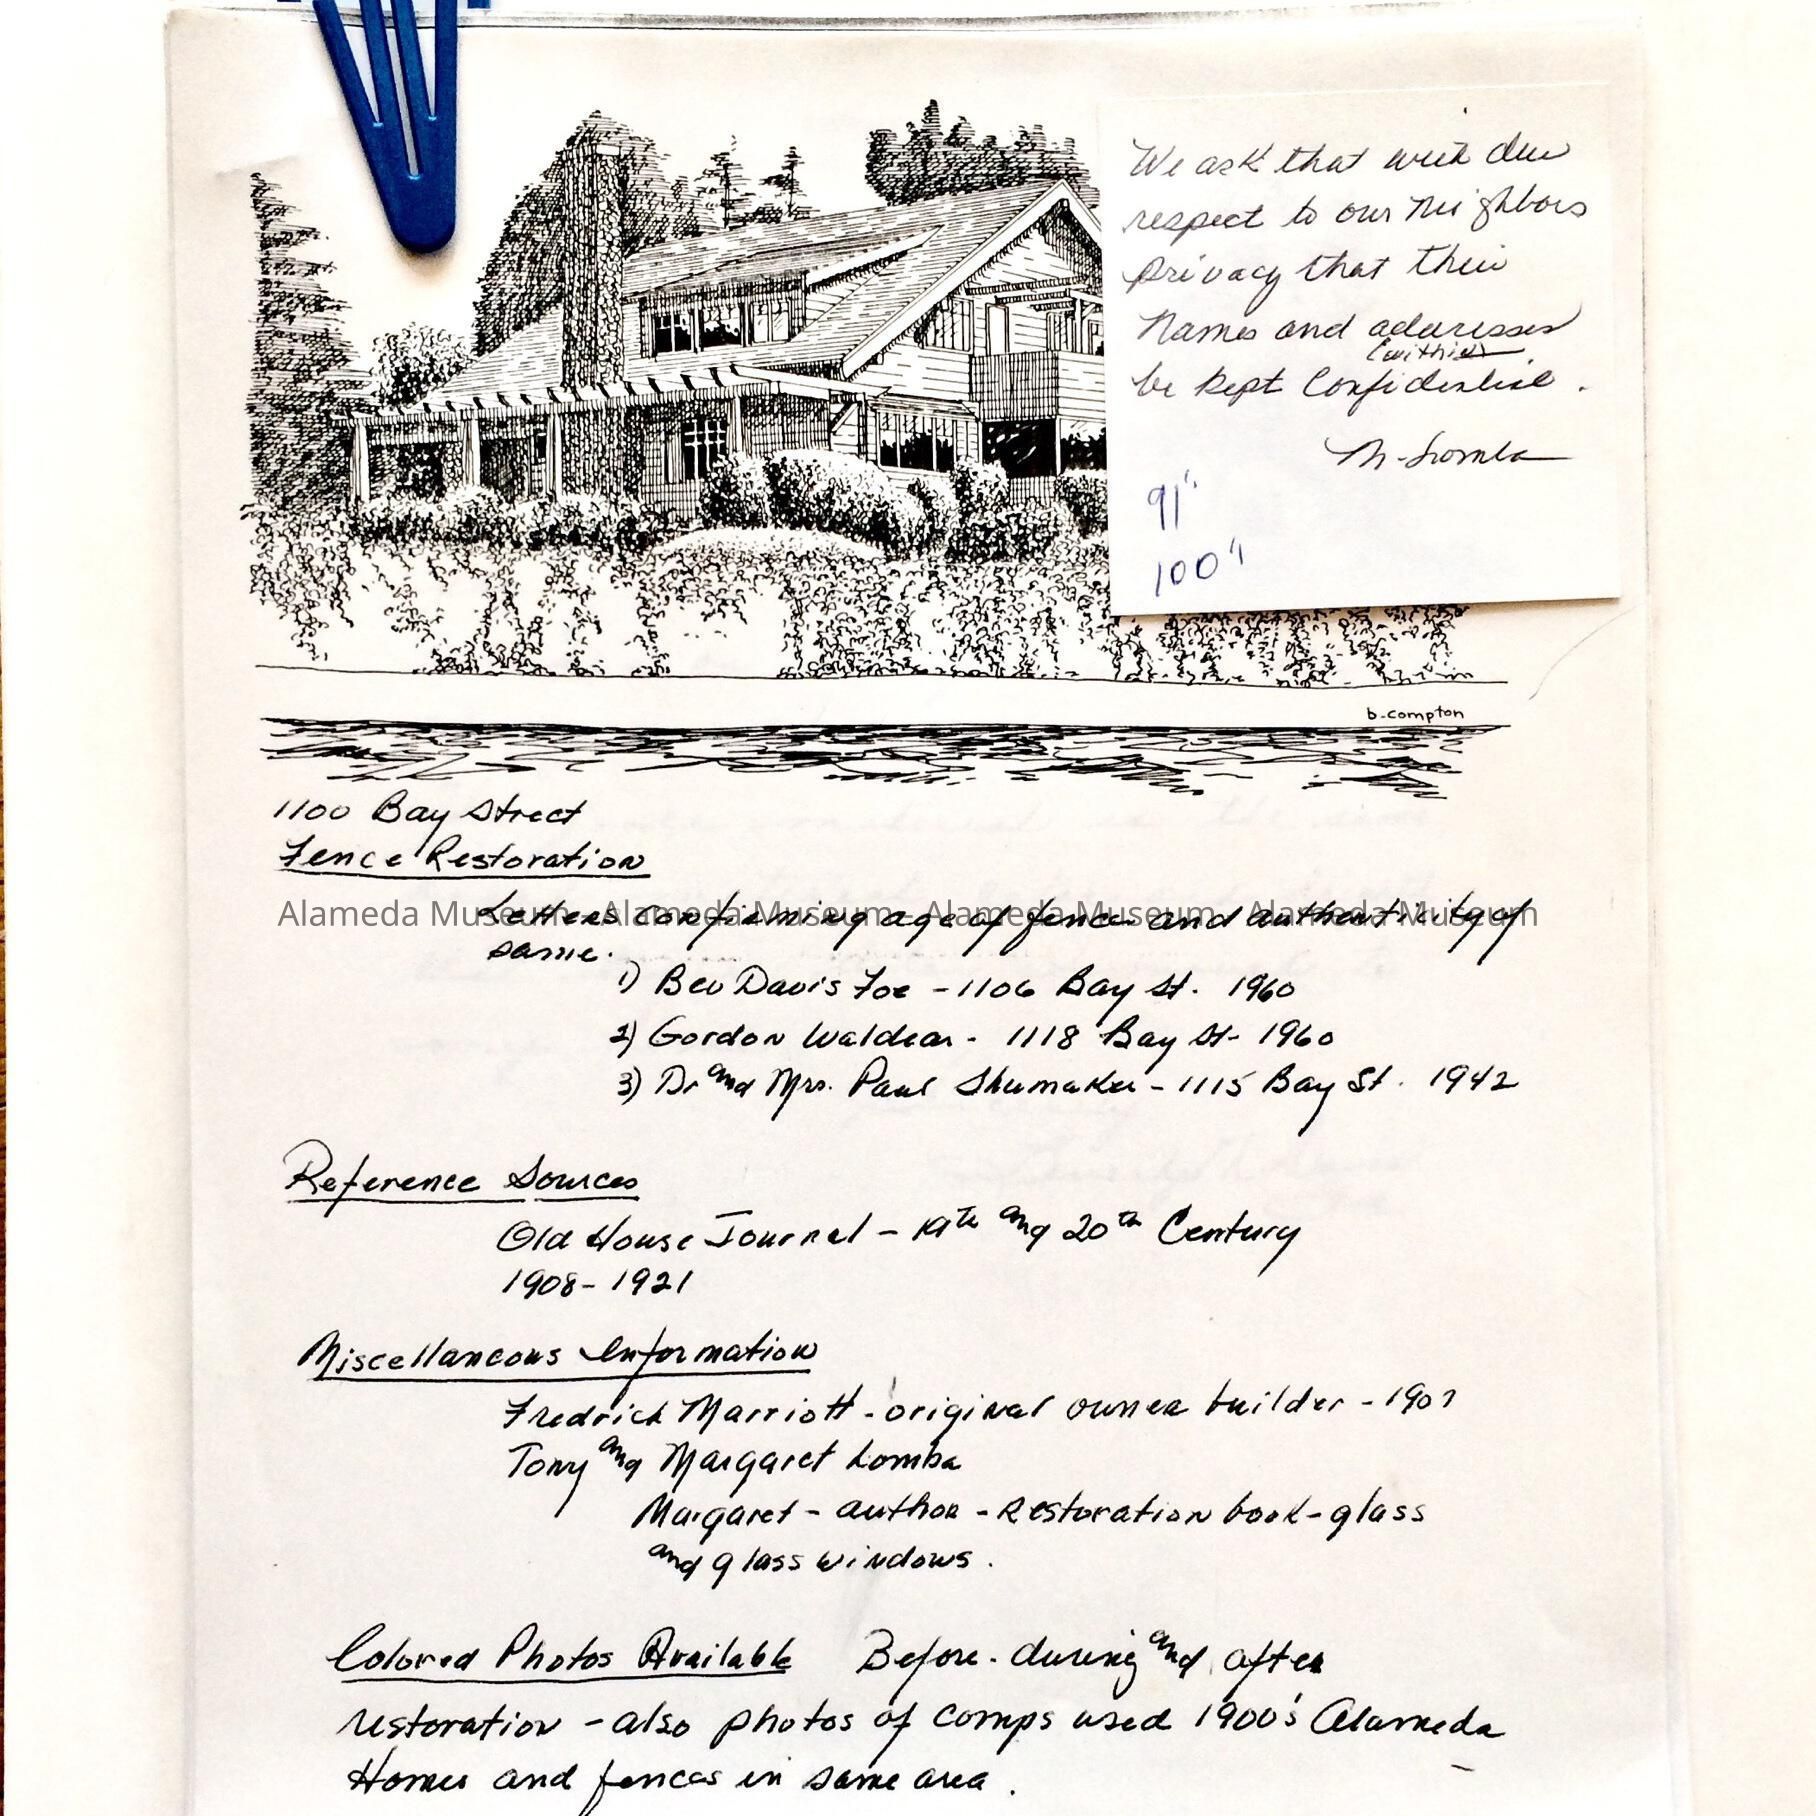 We ask that with due
respect to our neighbors
privacy that their
Names and addresses
(within)
be kept Confidential.
M. Lomba
91"
100"
b. compton
1100 Bay Street
Fence Restoration
Letters confirming age of fence and authenticity of
same.
Alameda Museum - Alameda Museum - Alameda Museum - Alameda Museum
1) Bev Davis Foe - 1106 Bay St. 1960
2) Gordon Waldear - 1118 Bay St - 1960
3) Dr and Mrs. Paul Shumaker - 1115 Bay St. 1942
Reference Sources
Old House Journal - 19th and 20th Century
1908 - 1921
Miscellaneous Information
Fredrick Marriott - original owner builder - 1907
Tony and Margaret Lomba
Margaret - author - Restoration book - glass
and glass windows.
Colored Photos Available Before - during and after
restoration - also photos of comps used 1900's Alameda
Homes and fences in same area.